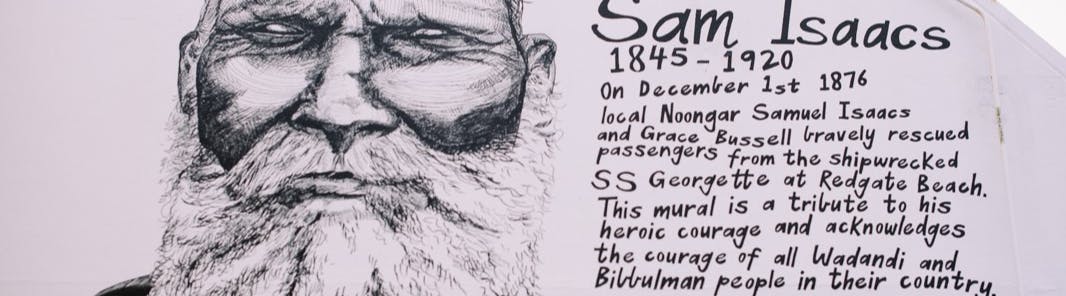 Sam Isaacs
1845 - 1920
On December 1st 1876
local Noongar Samuel Isaacs
and Grace Bussell bravely rescued
passengers from the shipwrecked
SS Georgette at Redgate Beach.
This mural is a tribute to his
heroic courage and acknowledges
the courage of all Wadandi and
Bibbulman people in their country.